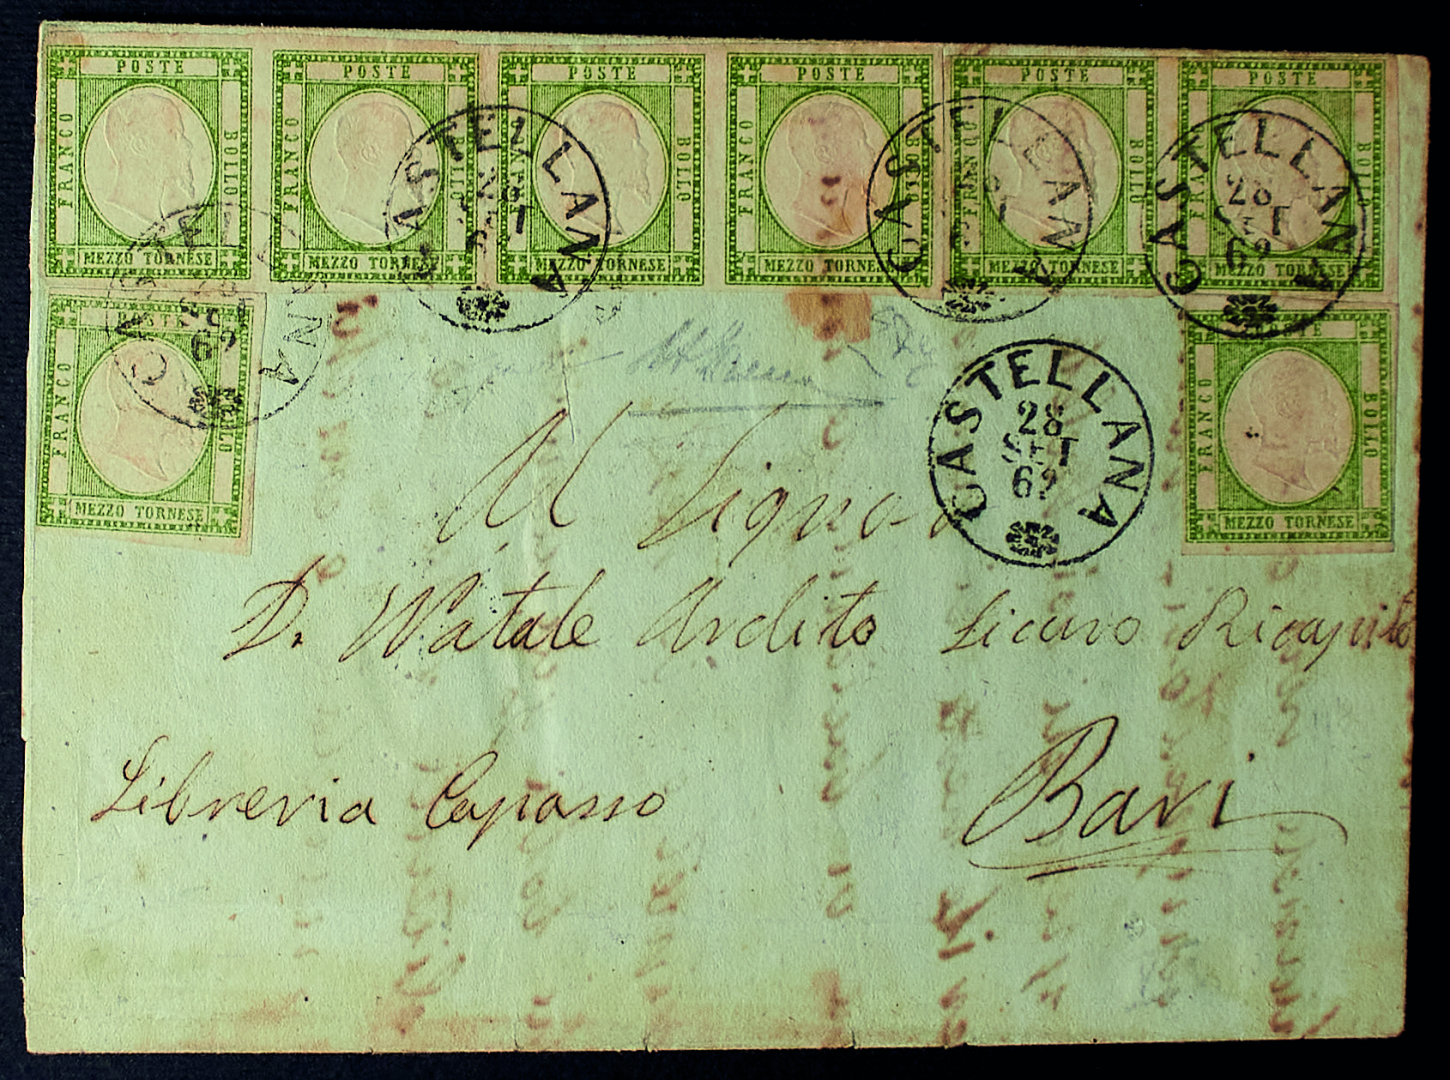 POSTE FRANCO BOLLO MEZZO TORNESE
POSTE FRANCO BOLLO MEZZO TORNESE
POSTE FRANCO BOLLO MEZZO TORNESE
POSTE FRANCO BOLLO MEZZO TORNESE
POSTE FRANCO BOLLO MEZZO TORNESE
POSTE BOLLO MEZZO TORNESE
CASTELLANA 28 SET
CASTELLANA
CASTELLANA 28 SET 62
CASTELLANA 62
POSTE FRANCO BOLLO MEZZO TORNESE
POSTE FRANCO BOLLO MEZZO TORNESE
CASTELLANA 28 SET 62
Al Signor
D. Natale Ardito Sicuro Ricapito
Libreria Capasso
Bari